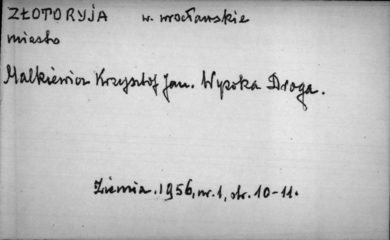 ZŁOTORYJA w. wrocławskie
miasto
Malkiewicz Krzysztof Jan. Wysoka Droga.
Ziemia. 1956, nr. 1, str. 10-11.